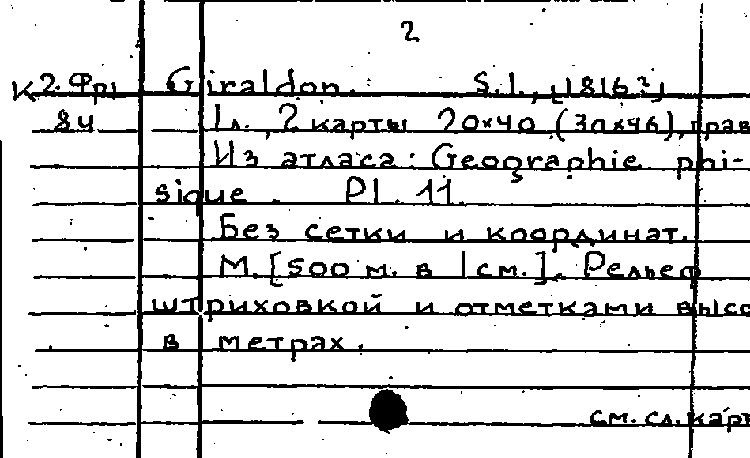 2
К2.Фр1 Giraldon. S.l., [1816?]
84 1 л., 2 карты 20×40 (30×46), грав
Из атласа: Geographie phi-
sique. Pl. 11.
Без сетки и координат.
М. [500 м. в 1 см.]. Рельеф
штриховкой и отметками высо
в метрах.
см. сл. карт